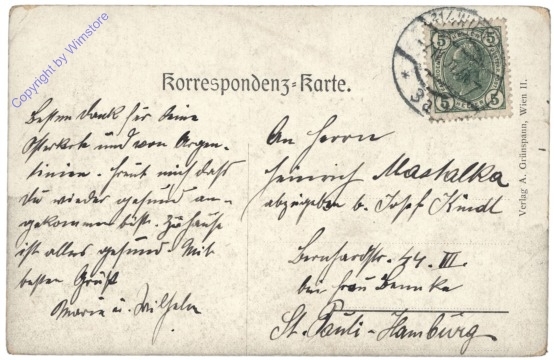 Copyright by Wimstore
Korrespondenz-Karte.
5 5
5 5
3a
Besten Dank für Deine
Osterkarte und von Argen-
tinien. Freut mich daß
Du wieder gesund an-
gekommen bist. Zuhause
ist alles gesund. Mit
besten Gruß
Maria u. Wilhelm
An Herrn
Heinrich Mastalka
abzugeben b. Josef Kindl
Bernhardstr. 44. III.
bei Frau
St. Pauli-Hamburg.
Verlag A. Grünspann, Wien II.